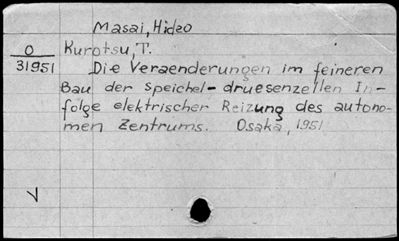 Masai, Hideo
O Kurotsu, T.
31951 Die Veraenderungen im feineren
Bau der speichel-druesenzellen In-
folge elektrischer Reizung des autono-
men Zentrums. Osaka, 1951
V